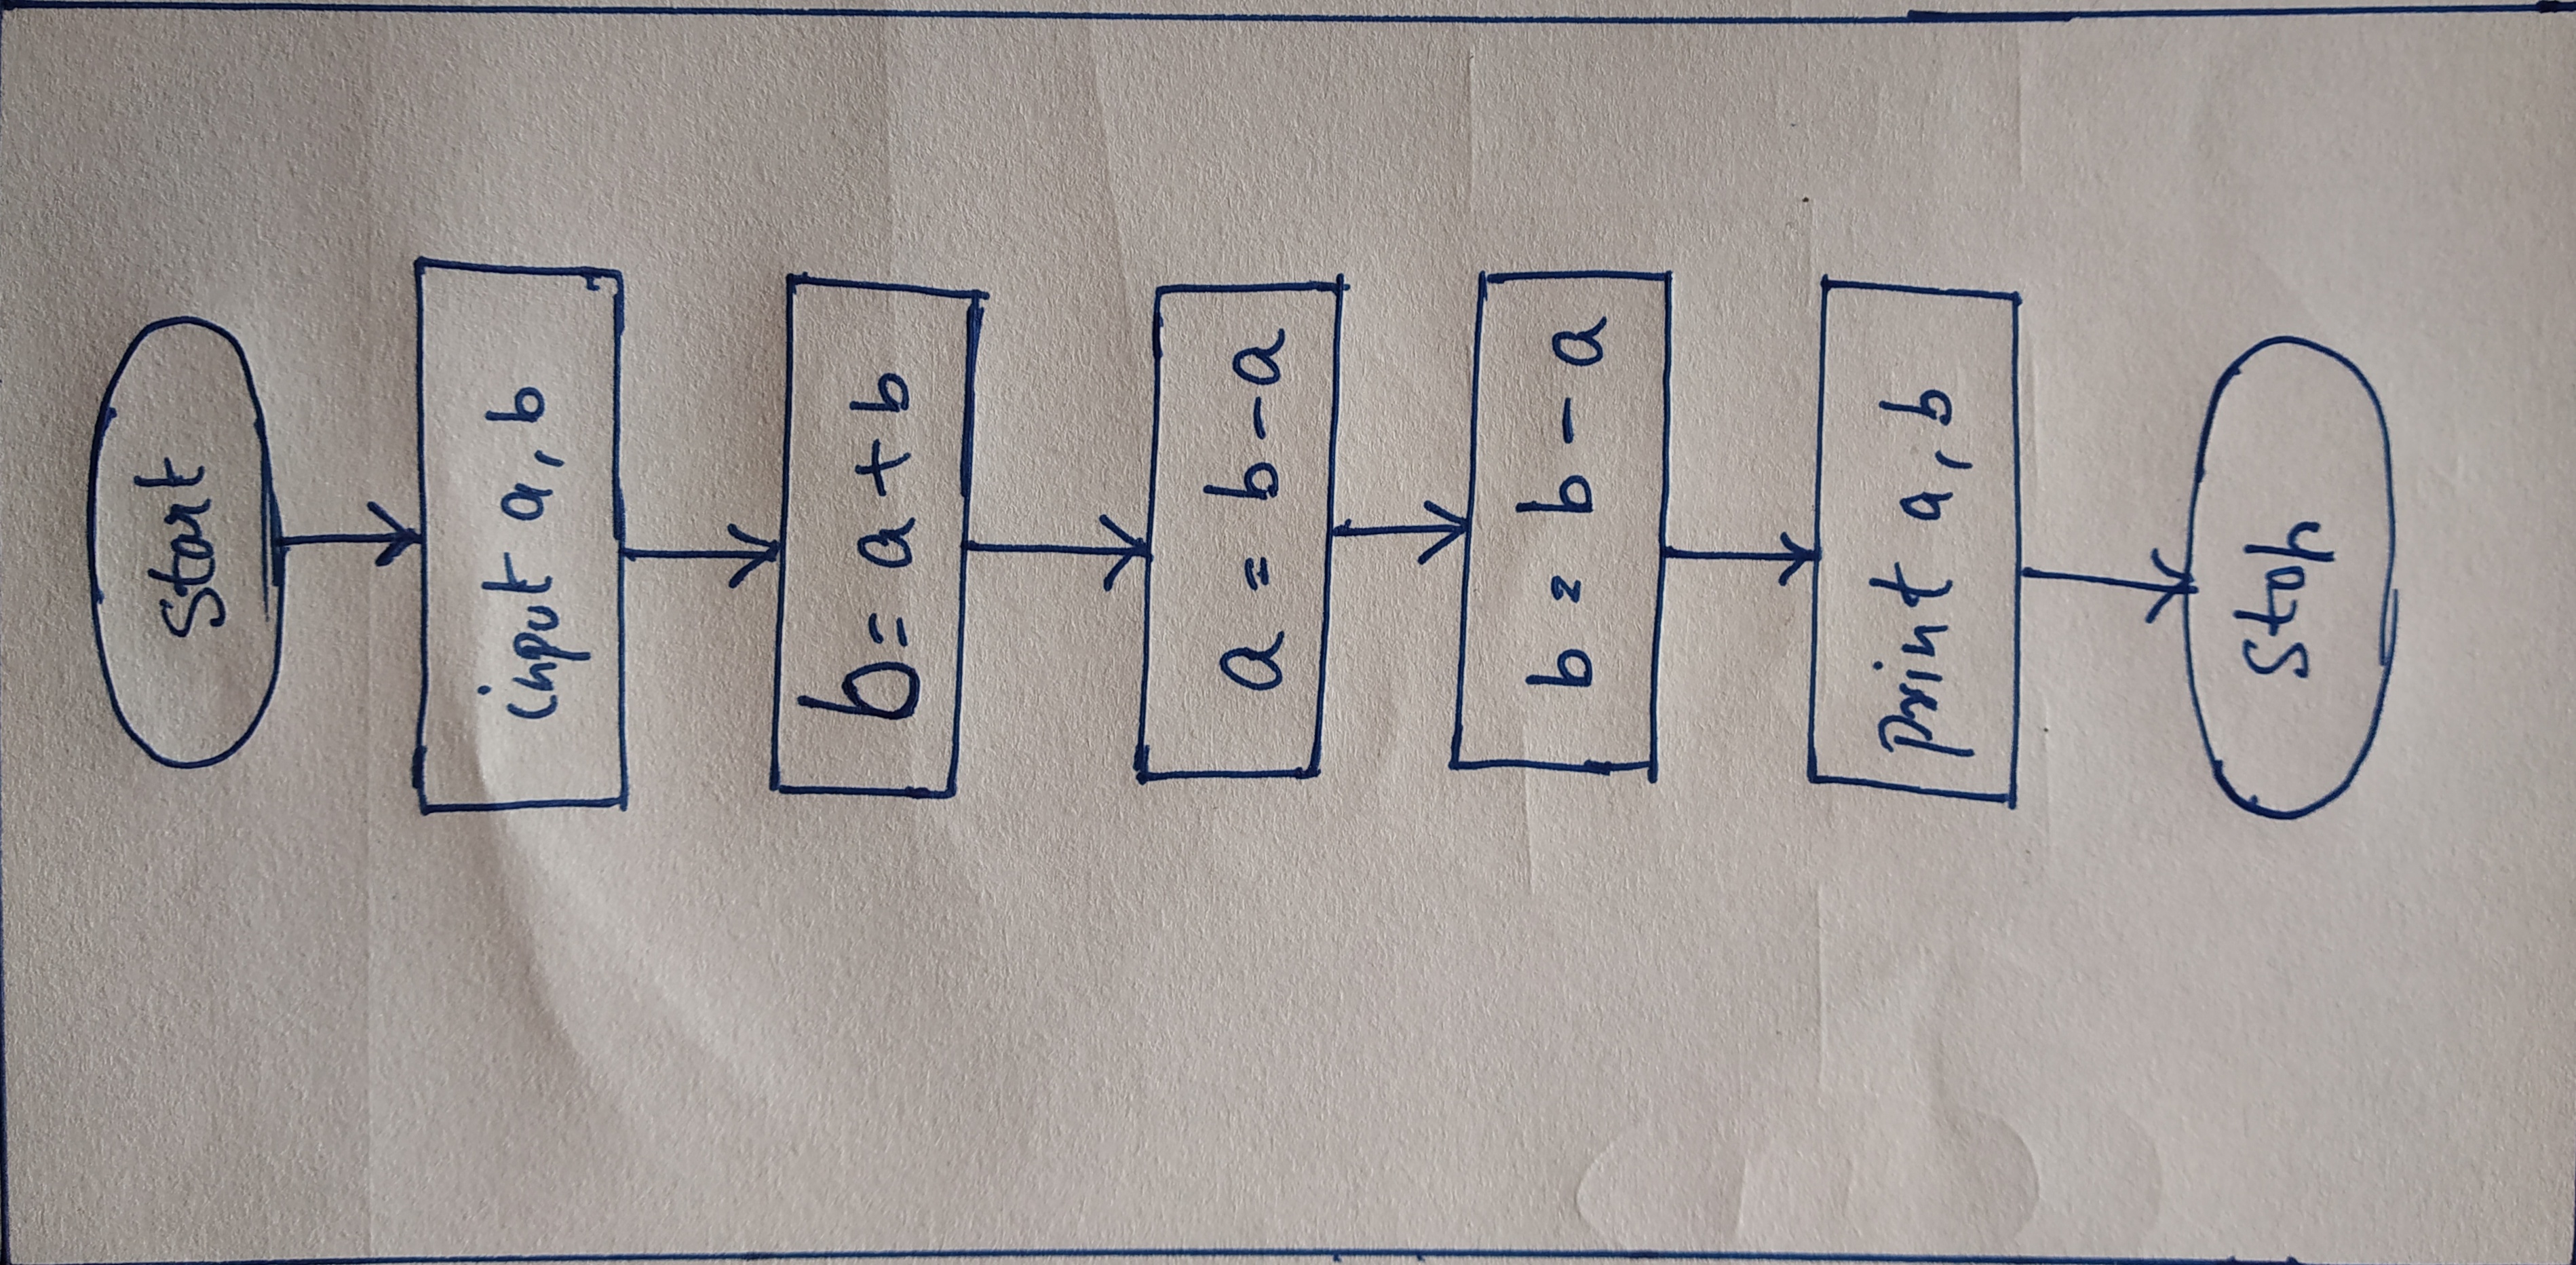 start
input a, b
b = a + b
a = b - a
b = b - a
print a, b
stop